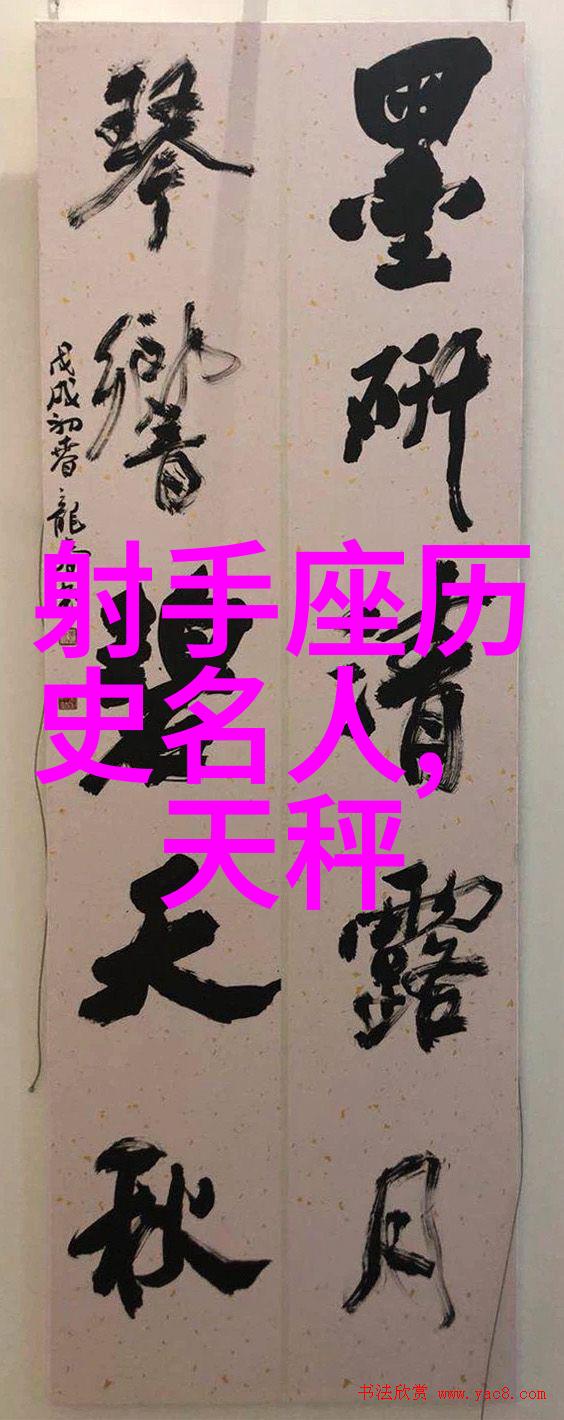 墨研清露月
琴響碧天秋
戊戌初春 龍
射手座历
史名人，
天秤
书法欣赏 www.yac8.com